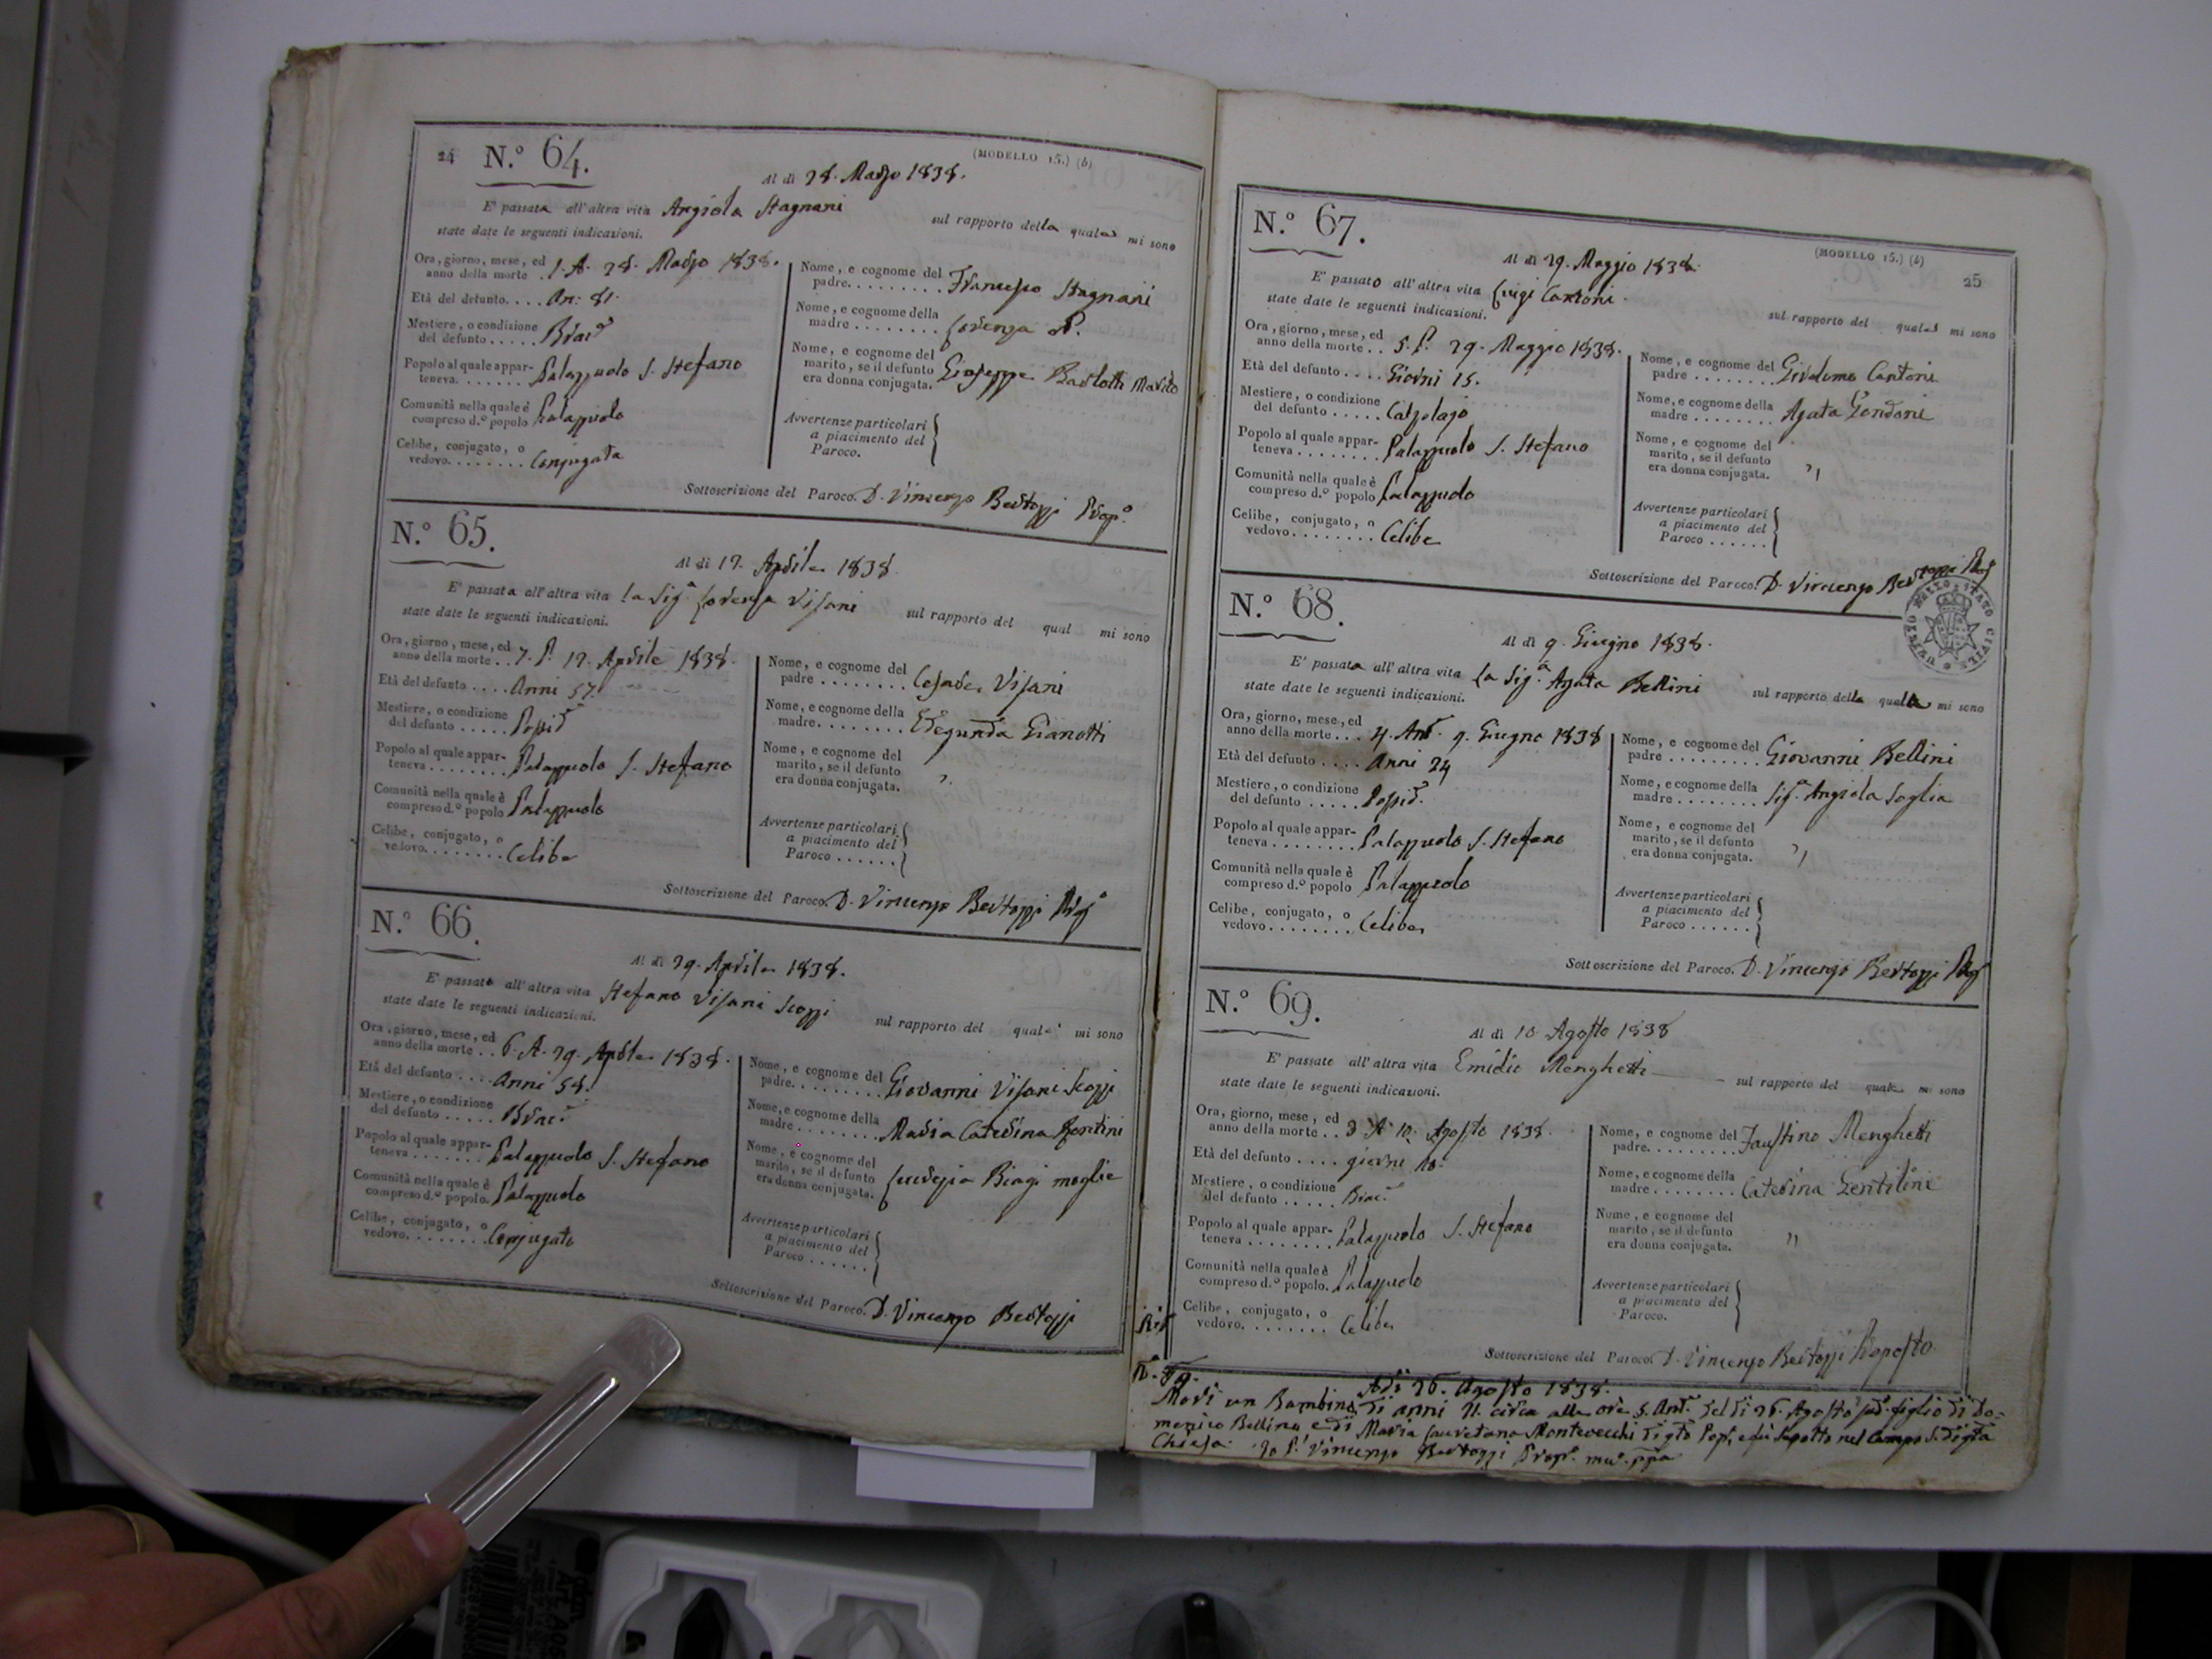 24 N.º 64. (MODELLO 15.) (b)
Al dì 28. Marzo 1838.
E' passata all'altra vita Angiola Stagnani sul rapporto della quale mi sono
state date le seguenti indicazioni.
Ora, giorno, mese, ed
anno della morte . 1. A. 28. Marzo 1838.
Età del defunto.... An: 81.
Mestiere, o condizione
del defunto.....
Popolo al quale appar-
teneva....... Palazzuolo S. Stefano
Comunità nella quale è
compreso d.º popolo Palazzuolo
Celibe, conjugato, o
vedovo........ Conjugata
Nome, e cognome del
padre......... Francesco Stagnani
Nome, e cognome della
madre ........ Lorenza N.
Nome, e cognome del
marito, se il defunto
era donna conjugata. Giuseppe Bartolotti Marito
Avvertenze particolari
a piacimento del
Paroco.
Sottoscrizione del Paroco. D. Vincenzo Bertozzi Prop.º
N.º 65.
Al dì 17. Aprile 1838.
E' passata all'altra vita la Sig.ª Lorenza Visani sul rapporto del qual mi sono
state date le seguenti indicazioni.
Ora, giorno, mese, ed
anno della morte .. 7. P. 17. Aprile 1838.
Età del defunto .... Anni 57.
Mestiere, o condizione
del defunto ..... Possid.
Popolo al quale appar-
teneva........ Palazzuolo S. Stefano
Comunità nella quale è
compreso d.º popolo Palazzuolo
Celibe, conjugato, o
vedovo........ Celibe
Nome, e cognome del
padre ........ Cesare Visani
Nome, e cognome della
madre........ Gianotti
Nome, e cognome del
marito, se il defunto
era donna conjugata.
Avvertenze particolari
a piacimento del
Paroco ......
Sottoscrizione del Paroco. D. Vincenzo Bertozzi
N.º 66.
Al dì 29. Aprile 1838.
E' passato all'altra vita Stefano Visani Scozzi sul rapporto del quale mi sono
state date le seguenti indicazioni.
Ora, giorno, mese, ed
anno della morte .. 6. A. 29. Aprile 1838.
Età del defunto .... Anni 58.
Mestiere, o condizione
del defunto .....
Popolo al quale appar-
teneva ....... Palazzuolo S. Stefano
Comunità nella quale è
compreso d.º popolo. Palazzuolo
Celibe, conjugato, o
vedovo........ Conjugato
Nome, e cognome del
padre........ Giovanni Visani Scozzi
Nome, e cognome della
madre ........ Maria Caterina
Nome, e cognome del
marito, se il defunto
era donna conjugata. Lucrezia Biagi moglie
Avvertenze particolari
a piacimento del
Paroco ......
Sottoscrizione del Paroco. D. Vincenzo Bertozzi
N.º 67. (MODELLO 15.) (b) 25
Al dì 29. Maggio 1838.
E' passato all'altra vita Luigi Cantoni. sul rapporto del quale mi sono
state date le seguenti indicazioni.
Ora, giorno, mese, ed
anno della morte .. 5. P. 29. Maggio 1838.
Età del defunto .... Giorni 15.
Mestiere, o condizione
del defunto ..... Calzolajo
Popolo al quale appar-
teneva ........ Palazzuolo S. Stefano
Comunità nella quale è
compreso d.º popolo Palazzuolo
Celibe, conjugato, o
vedovo........ Celibe
Nome, e cognome del
padre ........ Girolamo Cantoni
Nome, e cognome della
madre ........ Agata
Nome, e cognome del
marito, se il defunto
era donna conjugata. "
Avvertenze particolari
a piacimento del
Paroco ......
Sottoscrizione del Paroco. D. Vincenzo Bertozzi
UFIZIO DELLO STATO CIVILE
N.º 68.
Al dì 9. Giugno 1838.
E' passata all'altra vita la Sig.ª Agata Bellini sul rapporto della quale mi sono
state date le seguenti indicazioni.
Ora, giorno, mese, ed
anno della morte ... 4. Ant. 9. Giugno 1838
Età del defunto .... Anni 24
Mestiere, o condizione
del defunto ..... Possid.
Popolo al quale appar-
teneva ........ Palazzuolo S. Stefano
Comunità nella quale è
compreso d.º popolo Palazzuolo
Celibe, conjugato, o
vedovo........ Celibe
Nome, e cognome del
padre ......... Giovanni Bellini
Nome, e cognome della
madre ........ Sig.ª Angiola Soglia
Nome, e cognome del
marito, se il defunto
era donna conjugata. "
Avvertenze particolari
a piacimento del
Paroco ......
Sottoscrizione del Paroco. D. Vincenzo Bertozzi
N.º 69.
Al dì 10 Agosto 1838
E' passato all'altra vita Emidio Menghetti sul rapporto del quale mi sono
state date le seguenti indicazioni.
Ora, giorno, mese, ed
anno della morte .. 3 A 10. Agosto 1838.
Età del defunto .... giorni 10.
Mestiere, o condizione
del defunto ..... Brac.
Popolo al quale appar-
teneva ........ Palazzuolo S. Stefano
Comunità nella quale è
compreso d.º popolo. Palazzuolo
Celibe, conjugato, o
vedovo........ Celibe
Nome, e cognome del
padre......... Faustino Menghetti
Nome, e cognome della
madre ........ Caterina Gentilini
Nome, e cognome del
marito, se il defunto
era donna conjugata. "
Avvertenze particolari
a piacimento del
Paroco.
Sottoscrizione del Paroco. D. Vincenzo Bertozzi Proposto
Adì 26. Agosto 1838.
Morì un Bambino di anni circa alle ore 5. Ant. del dì 26. Agosto figlio di Do-
menico Bellini e di Maria Lauretana Montevecchi e fu sepolto nel Campo S.
Chiesa. Io P. Vincenzo Bertozzi Prop.º